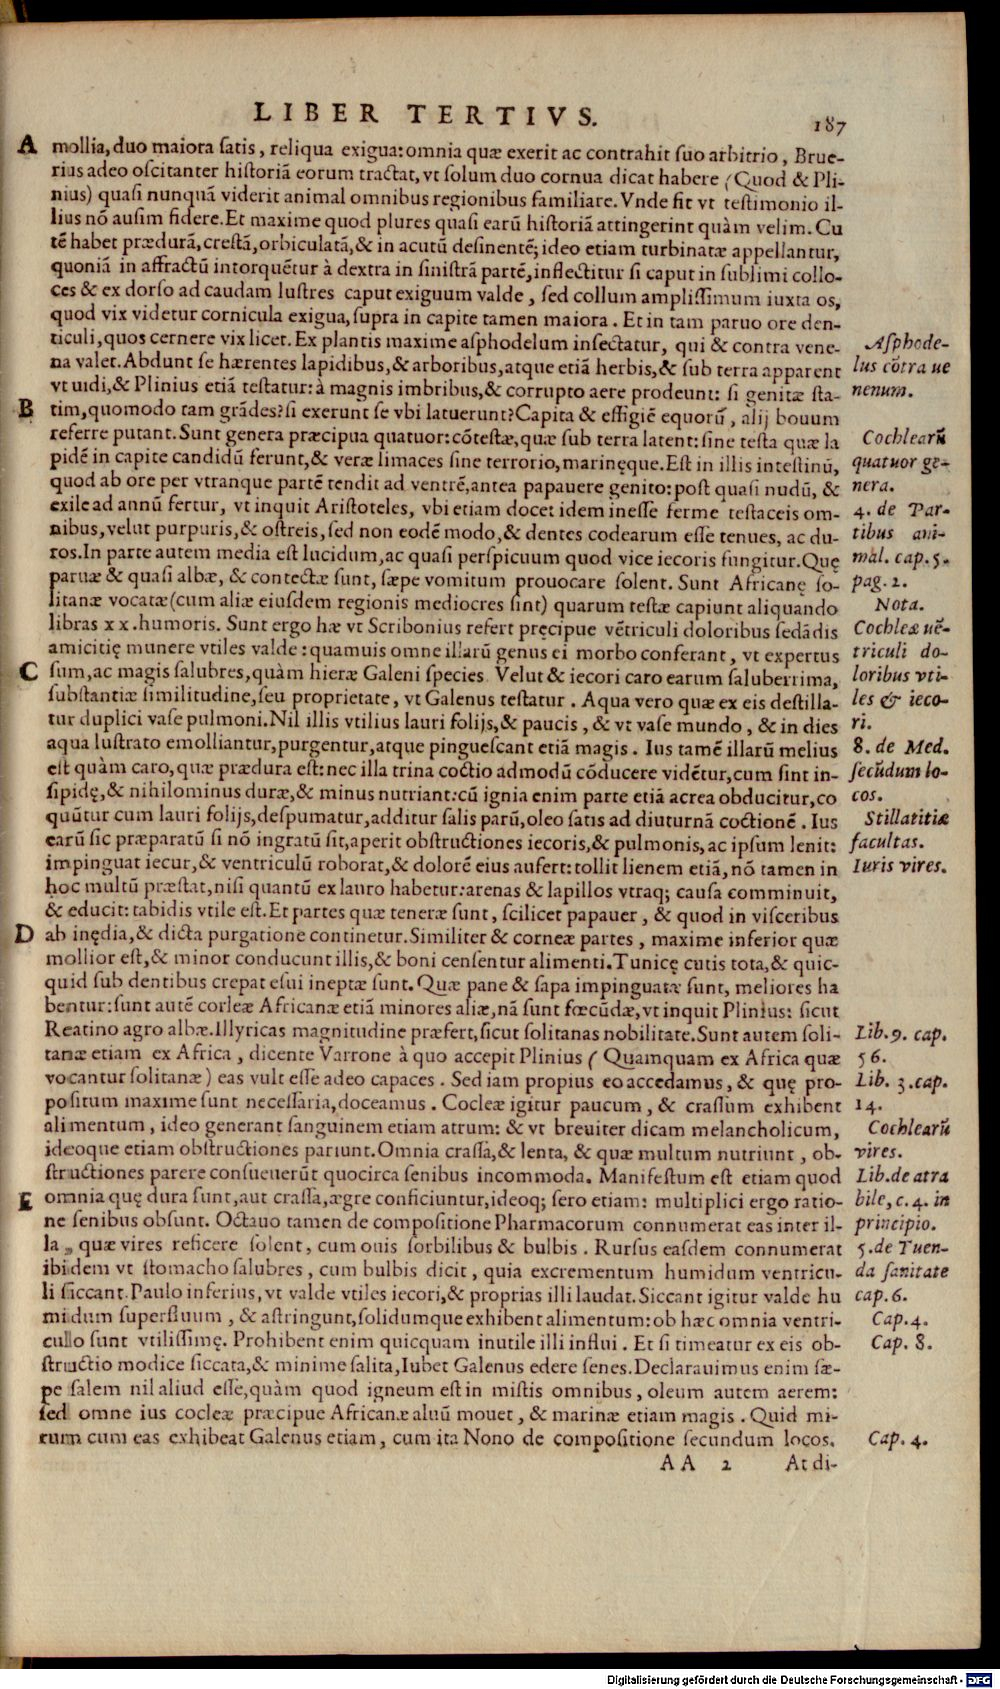 LIBER TERTIVS.
187
A mollia, duo maiora satis, reliqua exigua: omnia quæ exerit ac contrahit suo arbitrio, Brue-
rius adeo oscitanter historiã eorum tractat, vt solum duo cornua dicat habere (Quod & Pli-
nius) quasi nunquã viderit animal omnibus regionibus familiare. Vnde fit vt testimonio il-
lius nõ ausim fidere. Et maxime quod plures quasi earũ historiã attingerint quàm velim. Cu
tẽ habet prædurã, crestã, orbiculatã, & in acutũ desinentẽ; ideo etiam turbinatæ appellantur,
quoniã in affractũ intorquẽtur à dextra in sinistrã partẽ, inflectitur si caput in sublimi collo-
ces & ex dorso ad caudam lustres caput exiguum valde, sed collum amplissimum iuxta os,
quod vix videtur cornicula exigua, supra in capite tamen maiora. Et in tam paruo ore den-
ticuli, quos cernere vix licet. Ex plantis maxime asphodelum insectatur, qui & contra vene-
na valet. Abdunt se hærentes lapidibus, & arboribus, atque etiã herbis, & sub terra apparent
vt uidi, & Plinius etiã testatur: à magnis imbribus, & corrupto aere prodeunt: si genitæ sta-
B tim, quomodo tam grãdes? si exerunt se vbi latuerunt? Capita & effigiẽ equorũ, alij bouum
referre putant. Sunt genera præcipua quatuor: cõtestæ, quæ sub terra latent: sine testa quæ la
pidẽ in capite candidũ ferunt, & veræ limaces sine terrorio, marinęque. Est in illis intestinũ,
quod ab ore per vtranque partẽ tendit ad ventrẽ, antea papauere genito: post quasi nudũ, &
exile ad annũ fertur, vt inquit Aristoteles, vbi etiam docet idem inesse ferme testaceis om-
nibus, velut purpuris, & ostreis, sed non eodẽ modo, & dentes codearum esse tenues, ac du-
ros. In parte autem media est lucidum, ac quasi perspicuum quod vice iecoris fungitur. Quę
paruæ & quasi albæ, & contectæ sunt, sæpe vomitum prouocare solent. Sunt Africanę so-
litanæ vocatæ (cum aliæ eiusdem regionis mediocres sint) quarum testæ capiunt aliquando
libras xx. humoris. Sunt ergo hæ vt Scribonius refert pręcipue vẽtriculi doloribus sedãdis
amicitię munere vtiles valde: quamuis omne illarũ genus ei morbo conferant, vt expertus
C sum, ac magis salubres, quàm hieræ Galeni species. Velut & iecori caro earum saluberrima,
substantiæ similitudine, seu proprietate, vt Galenus testatur. Aqua vero quæ ex eis destilla-
tur duplici vase pulmoni. Nil illis vtilius lauri folijs, & paucis, & vt vase mundo, & in dies
aqua lustrato emolliantur, purgentur, atque pinguescant etiã magis. Ius tamẽ illarũ melius
est quàm caro, quæ prædura est: nec illa trina coctio admodũ cõducere vidẽtur, cum sint in-
sipidę, & nihilominus duræ, & minus nutriant: cũ ignia enim parte etiã acrea obducitur, co
quũtur cum lauri folijs, despumatur, additur salis parũ, oleo satis ad diuturnã coctionẽ. Ius
earũ sic præparatũ si nõ ingratũ sit, aperit obstructiones iecoris, & pulmonis, ac ipsum lenit:
impinguat iecur, & ventriculũ roborat, & dolorẽ eius aufert: tollit lienem etiã, nõ tamen in
hoc multũ præstat, nisi quantũ ex lauro habetur: arenas & lapillos vtraq; causa comminuit,
& educit: tabidis vtile est. Et partes quæ teneræ sunt, scilicet papauer, & quod in visceribus
D ab inędia, & dicta purgatione continetur. Similiter & corneæ partes, maxime inferior quæ
mollior est, & minor conducunt illis, & boni censentur alimenti. Tunicę cutis tota, & quic-
quid sub dentibus crepat esui ineptæ sunt. Quæ pane & sapa impinguatæ sunt, meliores ha
bentur: sunt autẽ corleæ Africanæ etiã minores aliæ, nã sunt fœcũdæ, vt inquit Plinius: sicut
Reatino agro albæ. Illyricas magnitudine præfert, sicut solitanas nobilitate. Sunt autem soli-
tanæ etiam ex Africa, dicente Varrone à quo accepit Plinius (Quamquam ex Africa quæ
vocantur solitanæ) eas vult esse adeo capaces. Sed iam propius eo accedamus, & quę pro-
positum maxime sunt necessaria, doceamus. Cocleæ igitur paucum, & crassum exhibent
alimentum, ideo generant sanguinem etiam atrum: & vt breuiter dicam melancholicum,
ideoque etiam obstructiones pariunt. Omnia crassa, & lenta, & quæ multum nutriunt, ob-
structiones parere consueuerũt quocirca senibus incommoda. Manifestum est etiam quod
E omnia quę dura sunt, aut crassa, ægre conficiuntur, ideoq; sero etiam: multiplici ergo ratio-
ne senibus obsunt. Octauo tamen de compositione Pharmacorum connumerat eas inter il-
la, quæ vires reficere solent, cum ouis sorbilibus & bulbis. Rursus easdem connumerat
ibidem vt stomacho salubres, cum bulbis dicit, quia excrementum humidum ventricu-
li siccant. Paulo inferius, vt valde vtiles iecori, & proprias illi laudat. Siccant igitur valde hu
midum superfluum, & astringunt, solidumque exhibent alimentum: ob hæc omnia ventri-
cullo sunt vtilissimę. Prohibent enim quicquam inutile illi influi. Et si timeatur ex eis ob-
structio modice siccata, & minime salita, Iubet Galenus edere senes. Declarauimus enim sæ-
pe salem nil aliud esse, quàm quod igneum est in mistis omnibus, oleum autem aerem:
sed omne ius cocleæ præcipue Africanæ aluũ mouet, & marinæ etiam magis. Quid mi-
rum cum eas exhibeat Galenus etiam, cum ita Nono de compositione secundum locos.
AA 2 At di-
Asphode-
lus cõtra ue
nenum.
Cochlearũ
quatuor ge-
nera.
4. de Par-
tibus ani-
mal. cap. 5.
pag. 2.
Nota.
Cochleæ uẽ-
triculi do-
loribus vti-
les & ieco-
ri.
8. de Med.
secũdum lo-
cos.
Stillatitiæ
facultas.
Iuris vires.
Lib. 9. cap.
56.
Lib. 3. cap.
14.
Cochlearũ
vires.
Lib. de atra
bile, c. 4. in
principio.
5. de Tuen-
da sanitate
cap. 6.
Cap. 4.
Cap. 8.
Cap. 4.
Digitalisierung gefördert durch die Deutsche Forschungsgemeinschaft - DFG